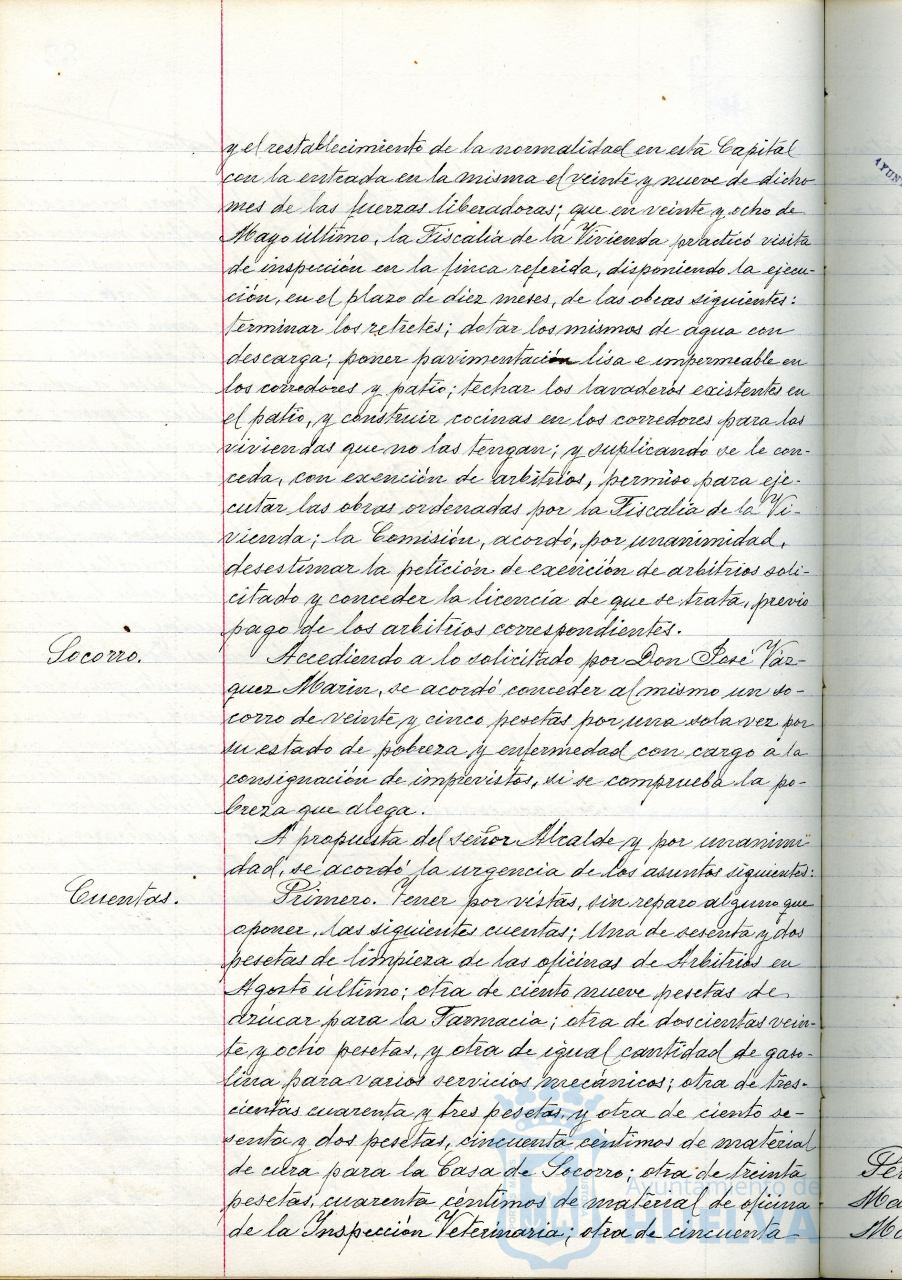 y el restablecimiento de la normalidad en esta Capital
con la entrada en la misma el veinte y nueve de dicho
mes de las fuerzas liberadoras; que en veinte y ocho de
Mayo último, la Fiscalía de la Vivienda practicó visita
de inspección en la finca referida, disponiendo la ejecu-
ción, en el plazo de diez meses, de las obras siguientes:
terminar los retretes; dotar los mismos de agua con
descarga; poner pavimentación lisa e impermeable en
los corredores y patio; techar los lavaderos existentes en
el patio, y construir cocinas en los corredores para las
viviendas que no las tengan; y suplicando se le con-
ceda, con exención de arbitrios, permiso para eje-
cutar las obras ordenadas por la Fiscalía de la Vi-
vienda; la Comisión, acordó, por unanimidad,
desestimar la petición de exención de arbitrios soli-
citado y conceder la licencia de que se trata, previo
pago de los arbitrios correspondientes.
Socorro.
Accediendo a lo solicitado por Don José Váz-
quez Marin, se acordó conceder al mismo un so-
corro de veinte y cinco pesetas por una sola vez por
su estado de pobreza y enfermedad con cargo a la
consignación de imprevistos, si se comprueba la po-
breza que alega.
A propuesta del señor Alcalde y por unanimi
dad, se acordó la urgencia de los asuntos siguientes:
Cuentas.
Primero. Tener por vistas, sin reparo alguno que
oponer, las siguientes cuentas; Una de sesenta y dos
pesetas de limpieza de las oficinas de Arbitrios en
Agosto último; otra de ciento nueve pesetas de
azúcar para la Farmacia; otra de doscientas vein-
te y ocho pesetas, y otra de igual cantidad de gaso-
lina para varios servicios mecánicos; otra de tres-
cientas cuarenta y tres pesetas, y otra de ciento se-
senta y dos pesetas, cincuenta céntimos de material
de cura para la Casa de Socorro; otra de treinta
pesetas, cuarenta centimos de material de oficina
de la Inspección Veterinaria; otra de cincuenta
Ayuntamiento de
HUELVA
AYUN
Ma